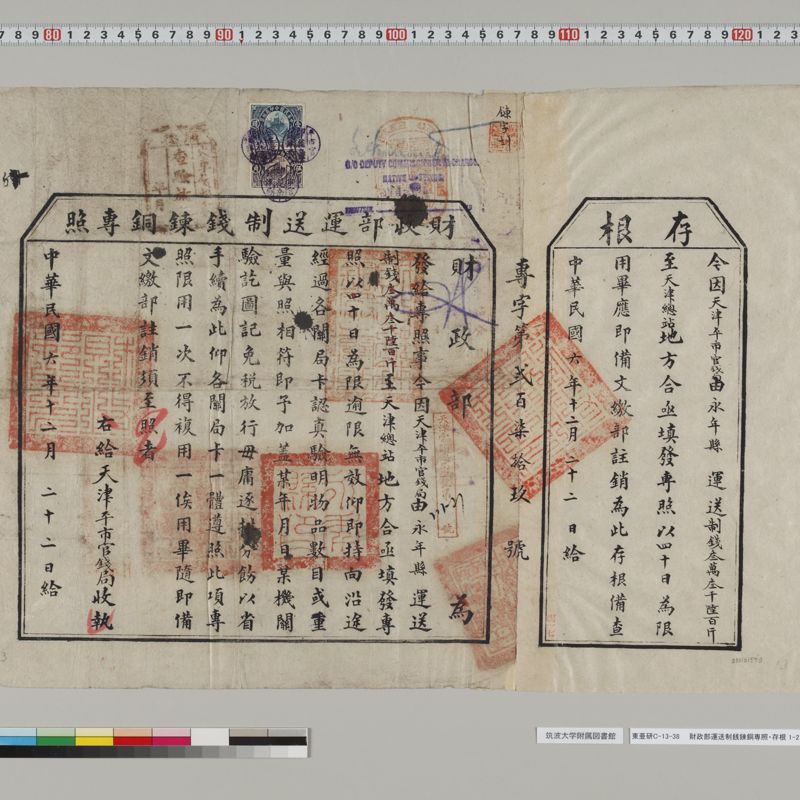 存根
令因天津平市官錢局由永年縣運送制錢叁萬叁千陸百斤
至天津總站地方合亟填發專照以四十日為限
用畢應即備文繳部註銷為此存根備查
中華民國六年十二月二十二日給
專字第貳百柒拾玖號
財政部運送制錢鍊銅專照
財政部為
發給專照事今因天津平市官錢局由永年縣運送
制錢叁萬叁千陸百斤至天津總站地方合亟填發專
照以四十日為限逾限無效仰即持向沿途
經過各關局卡認真驗明物品數目或重
量與照相符即予加蓋某年月日某機關
驗訖圖記免稅放行毋庸逐封分飭以省
手續為此仰各關局卡一體遵照此項專
照限用一次不得複用一俟用畢隨即備
文繳部註銷須至照者
右給天津平市官錢局收執
中華民國六年十二月二十二日給
筑波大学附属図書館
東亜研C-13-38 財政部運送制銭錬銅専照・存根 1-2